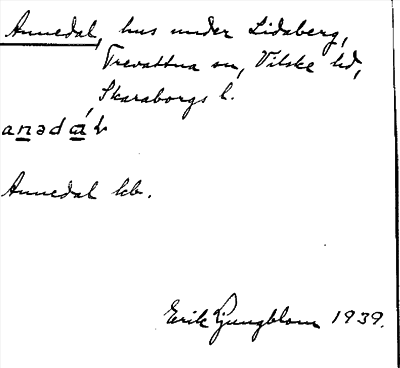 Annedal, hus under Lidaberg,
Trevattna sn, Vilske hd,
Skaraborgs l.
anədáɫ
Annedal kb.
Erik Ljungblom 1939.